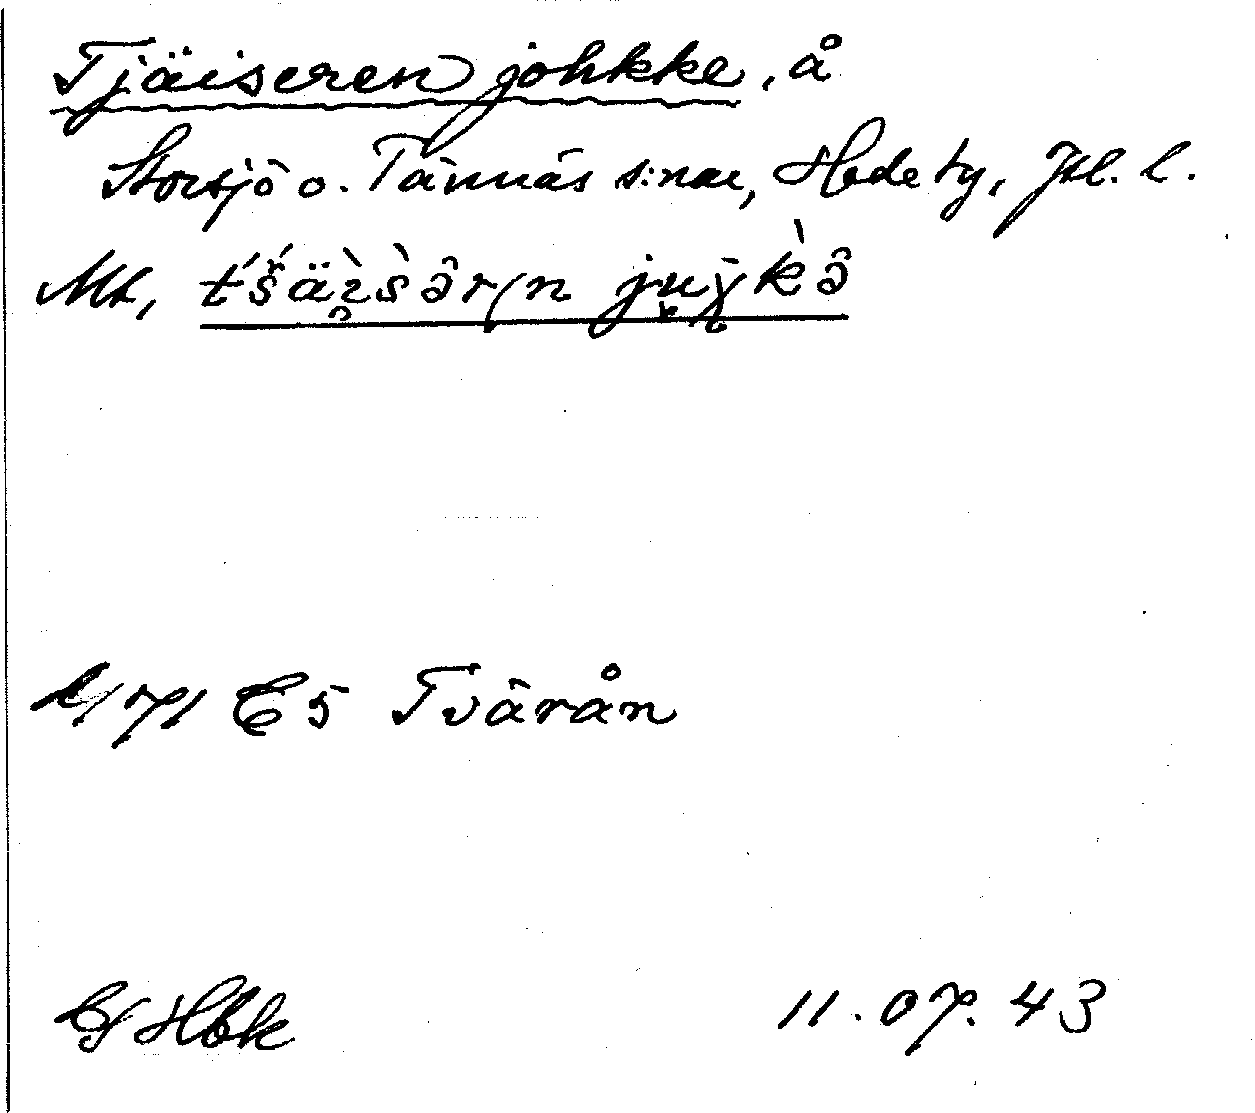 Tjäiseren johkke, å
Storsjö o. Tännäs s:nar, Hede tg, Jtl. l.
t́š́äi̥̇s̀ə̂rn jṷχk̀ə̂
71 E5 Tvärån
Hbk 11.07.43